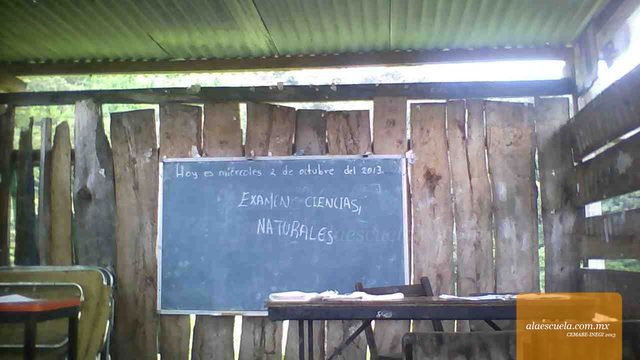 Hoy es miercoles 2 de octubre del 2013.
EXAMEN CIENCIAS
NATURALES
alaescuela.com.mx
CEMABE-INEGI 2013